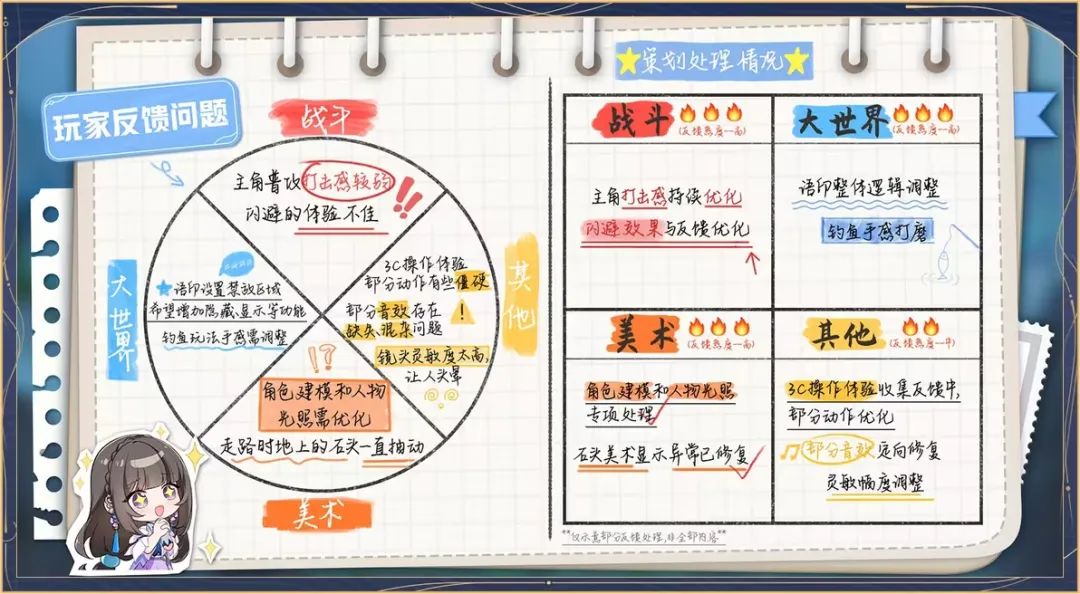 玩家反馈问题
战斗
主角普攻打击感较弱
闪避的体验不佳
大世界
语印设置禁放区域
希望增加隐藏、显示等功能
钓鱼玩法手感需调整
其他
3C操作体验
部分动作有些僵硬
部分音效存在
缺失混杂问题
镜头灵敏度太高,
让人头晕
角色建模和人物
光照需优化
走路时地上的石头一直抽动
美术
策划处理情况
战斗
(反馈热度一高)
主角打击感持续优化
闪避效果与反馈优化
大世界
(反馈热度一高)
语印整体逻辑调整
钓鱼手感打磨
美术
(反馈热度一高)
角色建模和人物光照
专项处理
石头美术显示异常已修复
其他
(反馈热度一中)
3C操作体验收集反馈中,
部分动作优化
部分音效定向修复
灵敏幅度调整
**仅示意部分反馈处理,非全部内容**